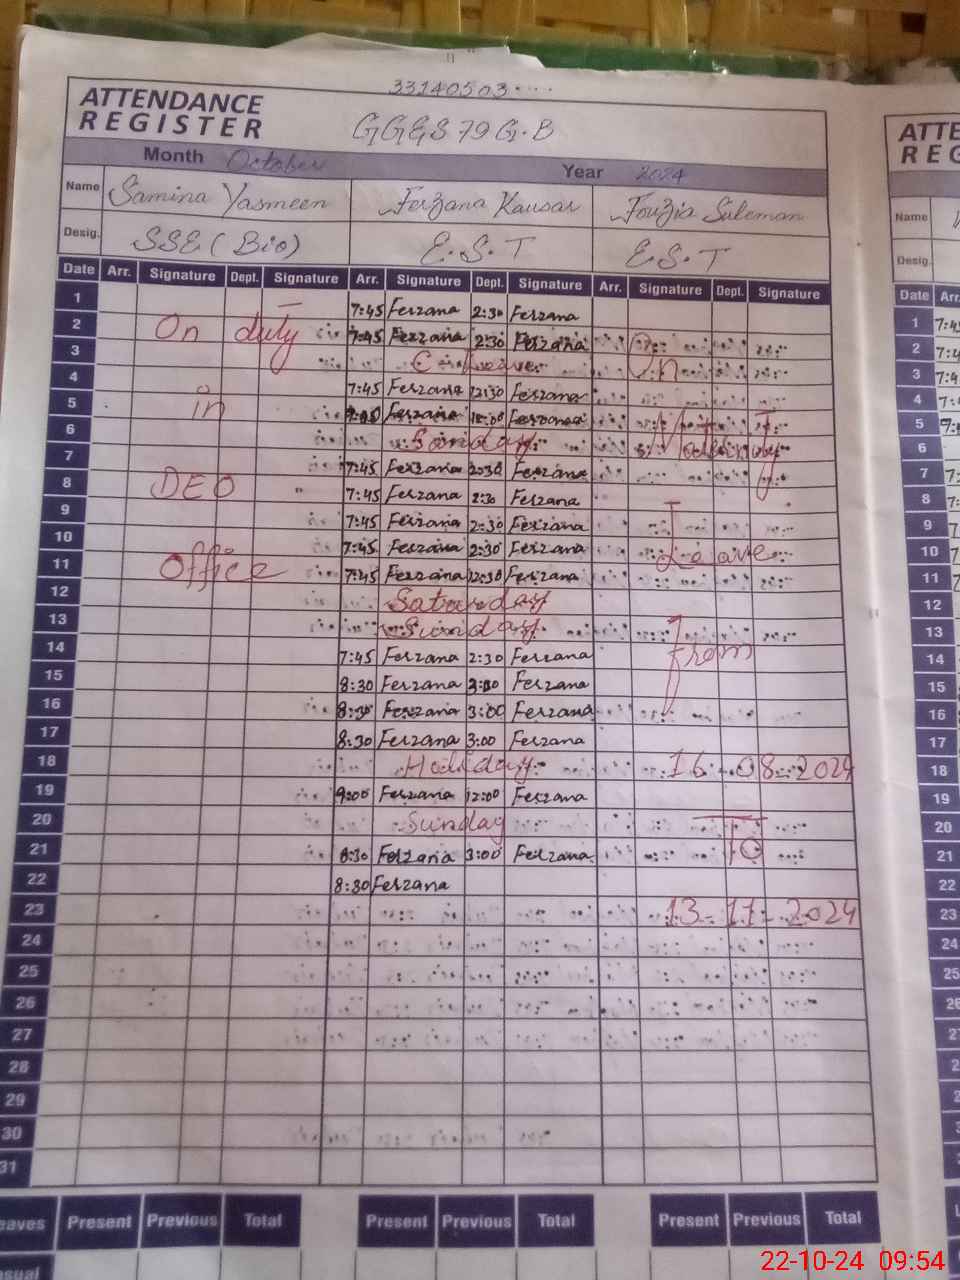 33140503....
ATTENDANCE
REGISTER
GGES 79 G.B
Month October Year 2024
Name Samina Yasmeen Ferzana Kausar Fouzia Suleman
Desig. SSE (Bio) E.S.T E.S.T
Date Arr. Signature Dept. Signature Arr. Signature Dept. Signature Arr. Signature Dept. Signature
1 7:45 Ferzana 2:30 Ferzana
2 On duty 7:45 Ferzana 2:30 Ferzana
3 Leave On
4 7:45 Ferzana 12:30 Ferzana
5 in Ferzana Ferzana
6 Sunday Maternity
7 7:45 Ferzana 2:30 Ferzana
8 DEO 7:45 Ferzana 2:30 Ferzana
9 7:45 Ferzana 2:30 Ferzana
10 7:45 Ferzana 2:30 Ferzana Leave
11 Office 7:45 Ferzana 12:30 Ferzana
12 Saturday
13 Sunday
14 7:45 Ferzana 2:30 Ferzana from
15 8:30 Ferzana 3:00 Ferzana
16 8:30 Ferzana 3:00 Ferzana
17 8:30 Ferzana 3:00 Ferzana
18 Holiday 16-08-2024
19 9:00 Ferzana 12:00 Ferzana
20 Sunday
21 8:30 Ferzana 3:00 Ferzana To
22 8:30 Ferzana
23 13-11-2024
24
25
26
27
28
29
30
31
eaves Present Previous Total Present Previous Total Present Previous Total
asual
ATTE
REG
Name
Desig.
Date Arr.
1 7:4
2 7:4
3 7:4
4 7:
5
6
7 7:
8 7:
9 7:
10 7:
11 7:
12
13
14
15
16
17
18
19
20
21
22
23
24
25
26
27
22-10-24 09:54